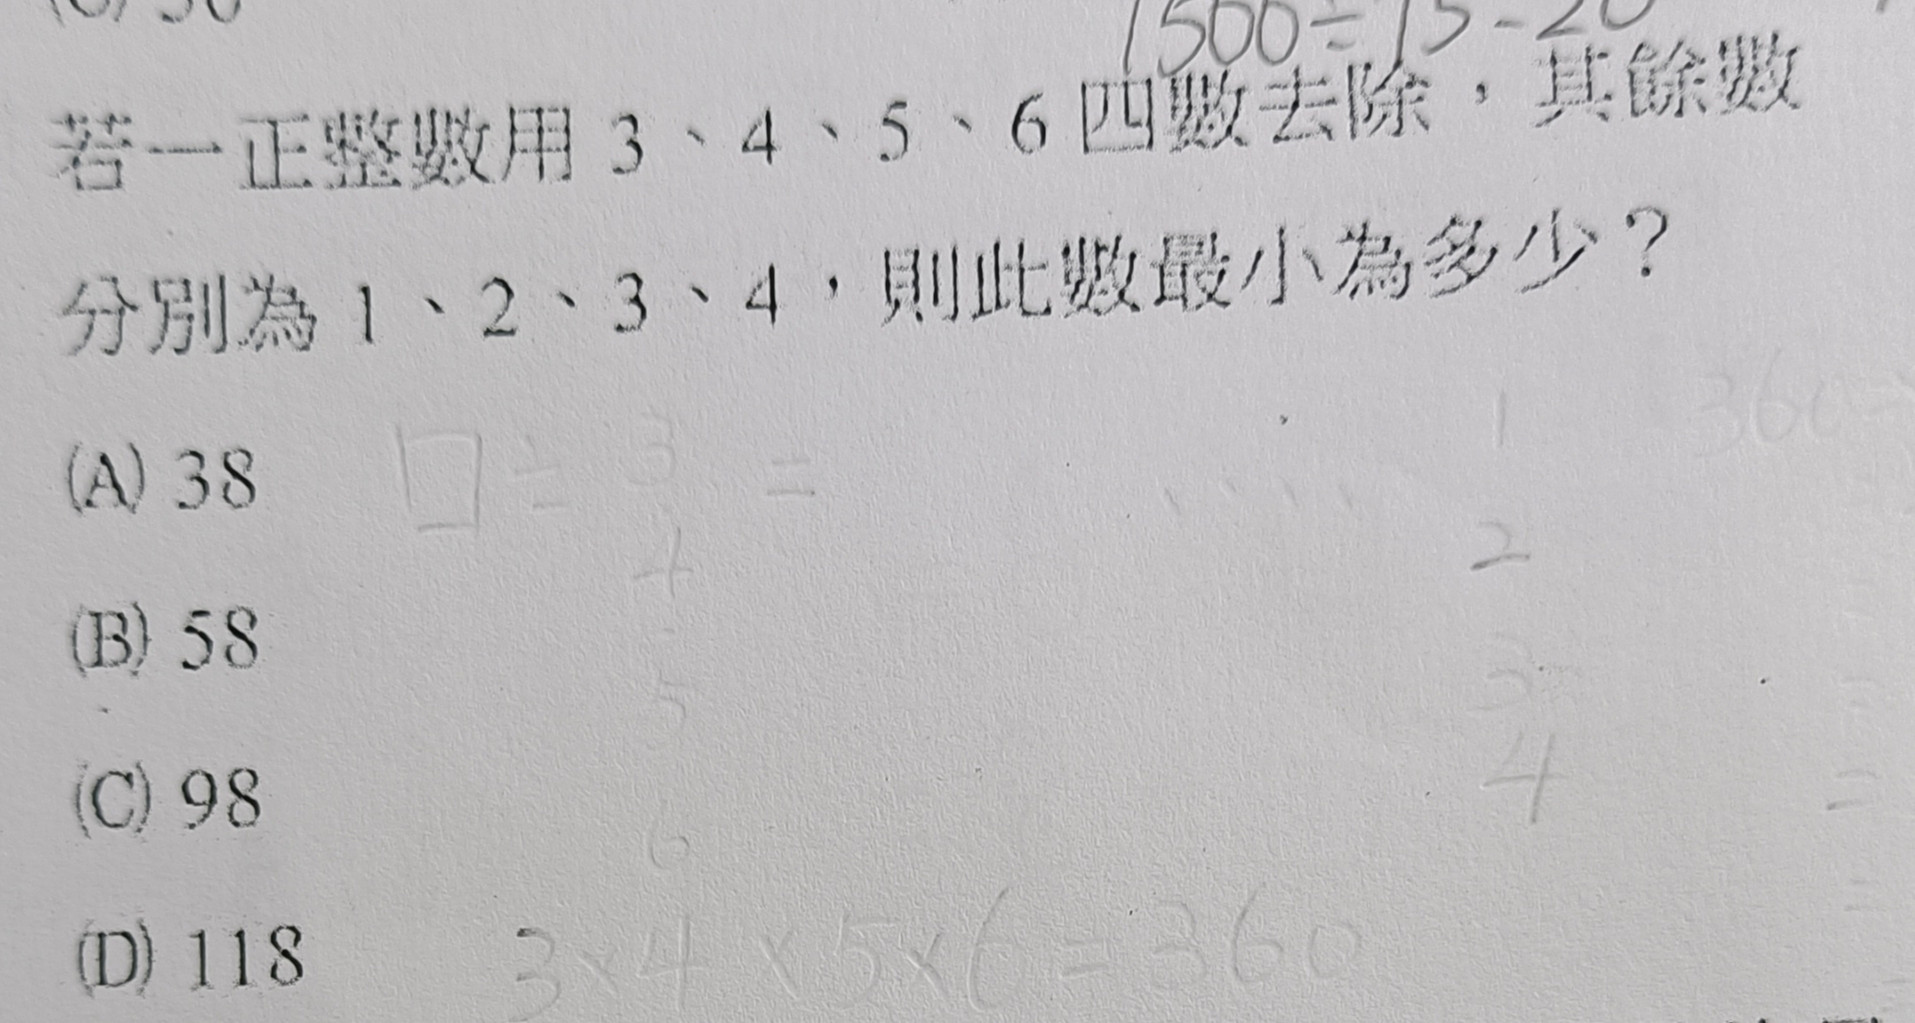 1500÷75-20
若一正整數用 3、4、5、6 四數去除，其餘數
分別為 1、2、3、4，則此數最小為多少？
(A) 38
□ ÷ 3 = ‥‥ 1
360
4 2
(B) 58
5 3
(C) 98
6 4
(D) 118
3×4×5×6=360